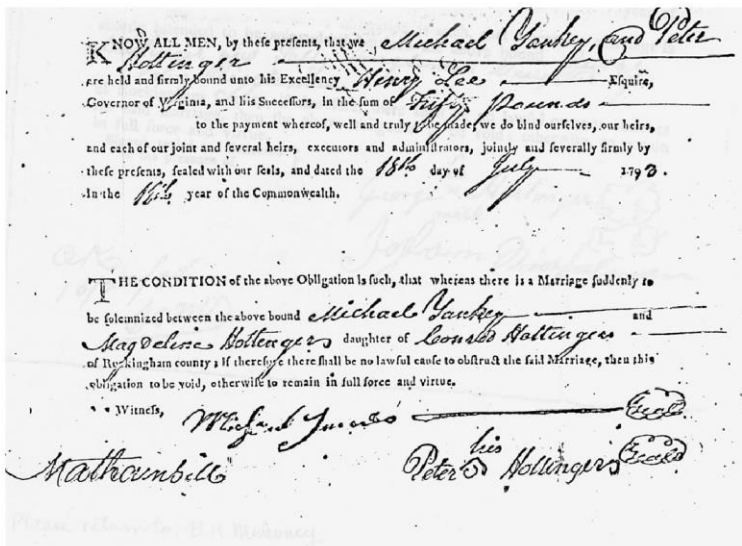 KNOW ALL MEN, by these presents, that we Michael Yankey and Peter
Hottinger
are held and firmly bound unto his Excellency Henry Lee Esquire,
Governor of Virginia, and his Successors, in the sum of Fifty Pounds
to the payment whereof, well and truly to be made, we do bind ourselves, our heirs,
and each of our joint and several heirs, executors and administrators, jointly and severally firmly by
these presents, sealed with our seals, and dated the 18th day of July 1793.
In the year of the Commonwealth.
THE CONDITION of the above Obligation is such, that whereas there is a Marriage suddenly to
be solemnized between the above bound Michael Yankey and
Magdeline Hottengers daughter of Conrod Hottingers
of Rockingham county; if therefore there shall be no lawful cause to obstruct the said Marriage, then this
obligation to be void, otherwise to remain in full force and virtue.
Witness,
(Seal)
his
Peter Hottingers (Seal)
Please return to: B.H.